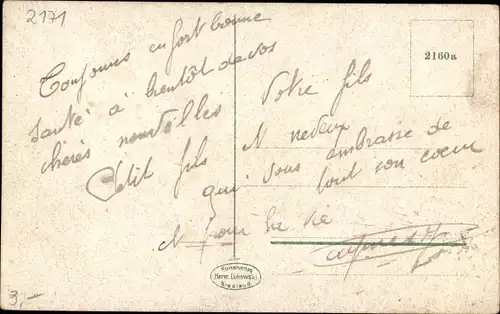 2171
Toujours en fort bonne
santé à bientôt de vos
chères nouvelles Votre fils
Petit fils N neveux
qui vous embrasse de
tout son coeur
N pour la vie
2160a
Kunstverlag
Herm. Lukowski
Breslau
3,-